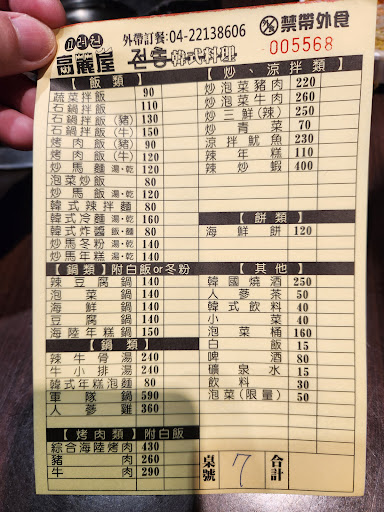 고려원
高麗屋
外帶訂餐:04-22138606
전통 韓式料理
禁帶外食
005568
【飯類】
蔬菜拌飯 90
石鍋拌飯 110
石鍋拌飯(豬) 130
石鍋拌飯(牛) 150
烤肉飯(豬) 90
烤肉飯(牛) 120
炒馬麵 湯·乾 120
泡菜炒飯 80
炒馬飯 湯·乾 120
韓式辣拌麵 80
韓式冷麵 湯·乾 160
韓式炸醬 飯·麵 80
炒馬冬粉 湯·乾 140
炒馬年糕 湯·乾 140
【鍋類】附白飯or冬粉
辣豆腐鍋 140
泡菜鍋 140
海鮮鍋 140
豆腐鍋 140
海陸年糕鍋 150
【鍋類】
辣牛骨湯 240
牛小排湯 240
韓式年糕泡麵 80
軍隊鍋 590
人蔘雞 360
【烤肉類】附白飯
綜合海陸烤肉 430
豬肉 260
牛肉 290
【炒、涼拌類】
炒泡菜豬肉 220
炒泡菜牛肉 260
炒三鮮(辣) 250
炒青菜 70
涼拌魷魚 230
辣年糕 110
辣炒蝦 400
【餅類】
海鮮餅 120
【其他】
韓國燒酒 250
人蔘茶 50
韓式飲料 40
小菜 40
泡菜桶 160
白飯 15
啤酒 80
礦泉水 15
飲料 30
泡菜(限量) 50
桌號 7 合計